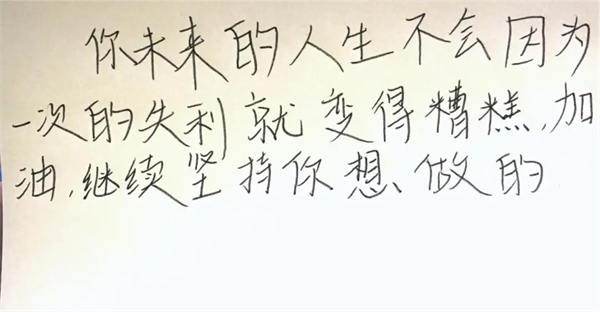 你未来的人生不会因为
一次的失利就变得糟糕,加
油,继续坚持你想、做的